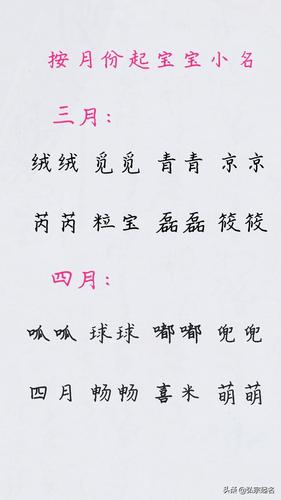 按月份起宝宝小名
三月:
绒绒 觅觅 青青 京京
芮芮 粒宝 磊磊 筱筱
四月:
呱呱 球球 嘟嘟 兜兜
四月 畅畅 喜米 萌萌
头条 @弘宗起名